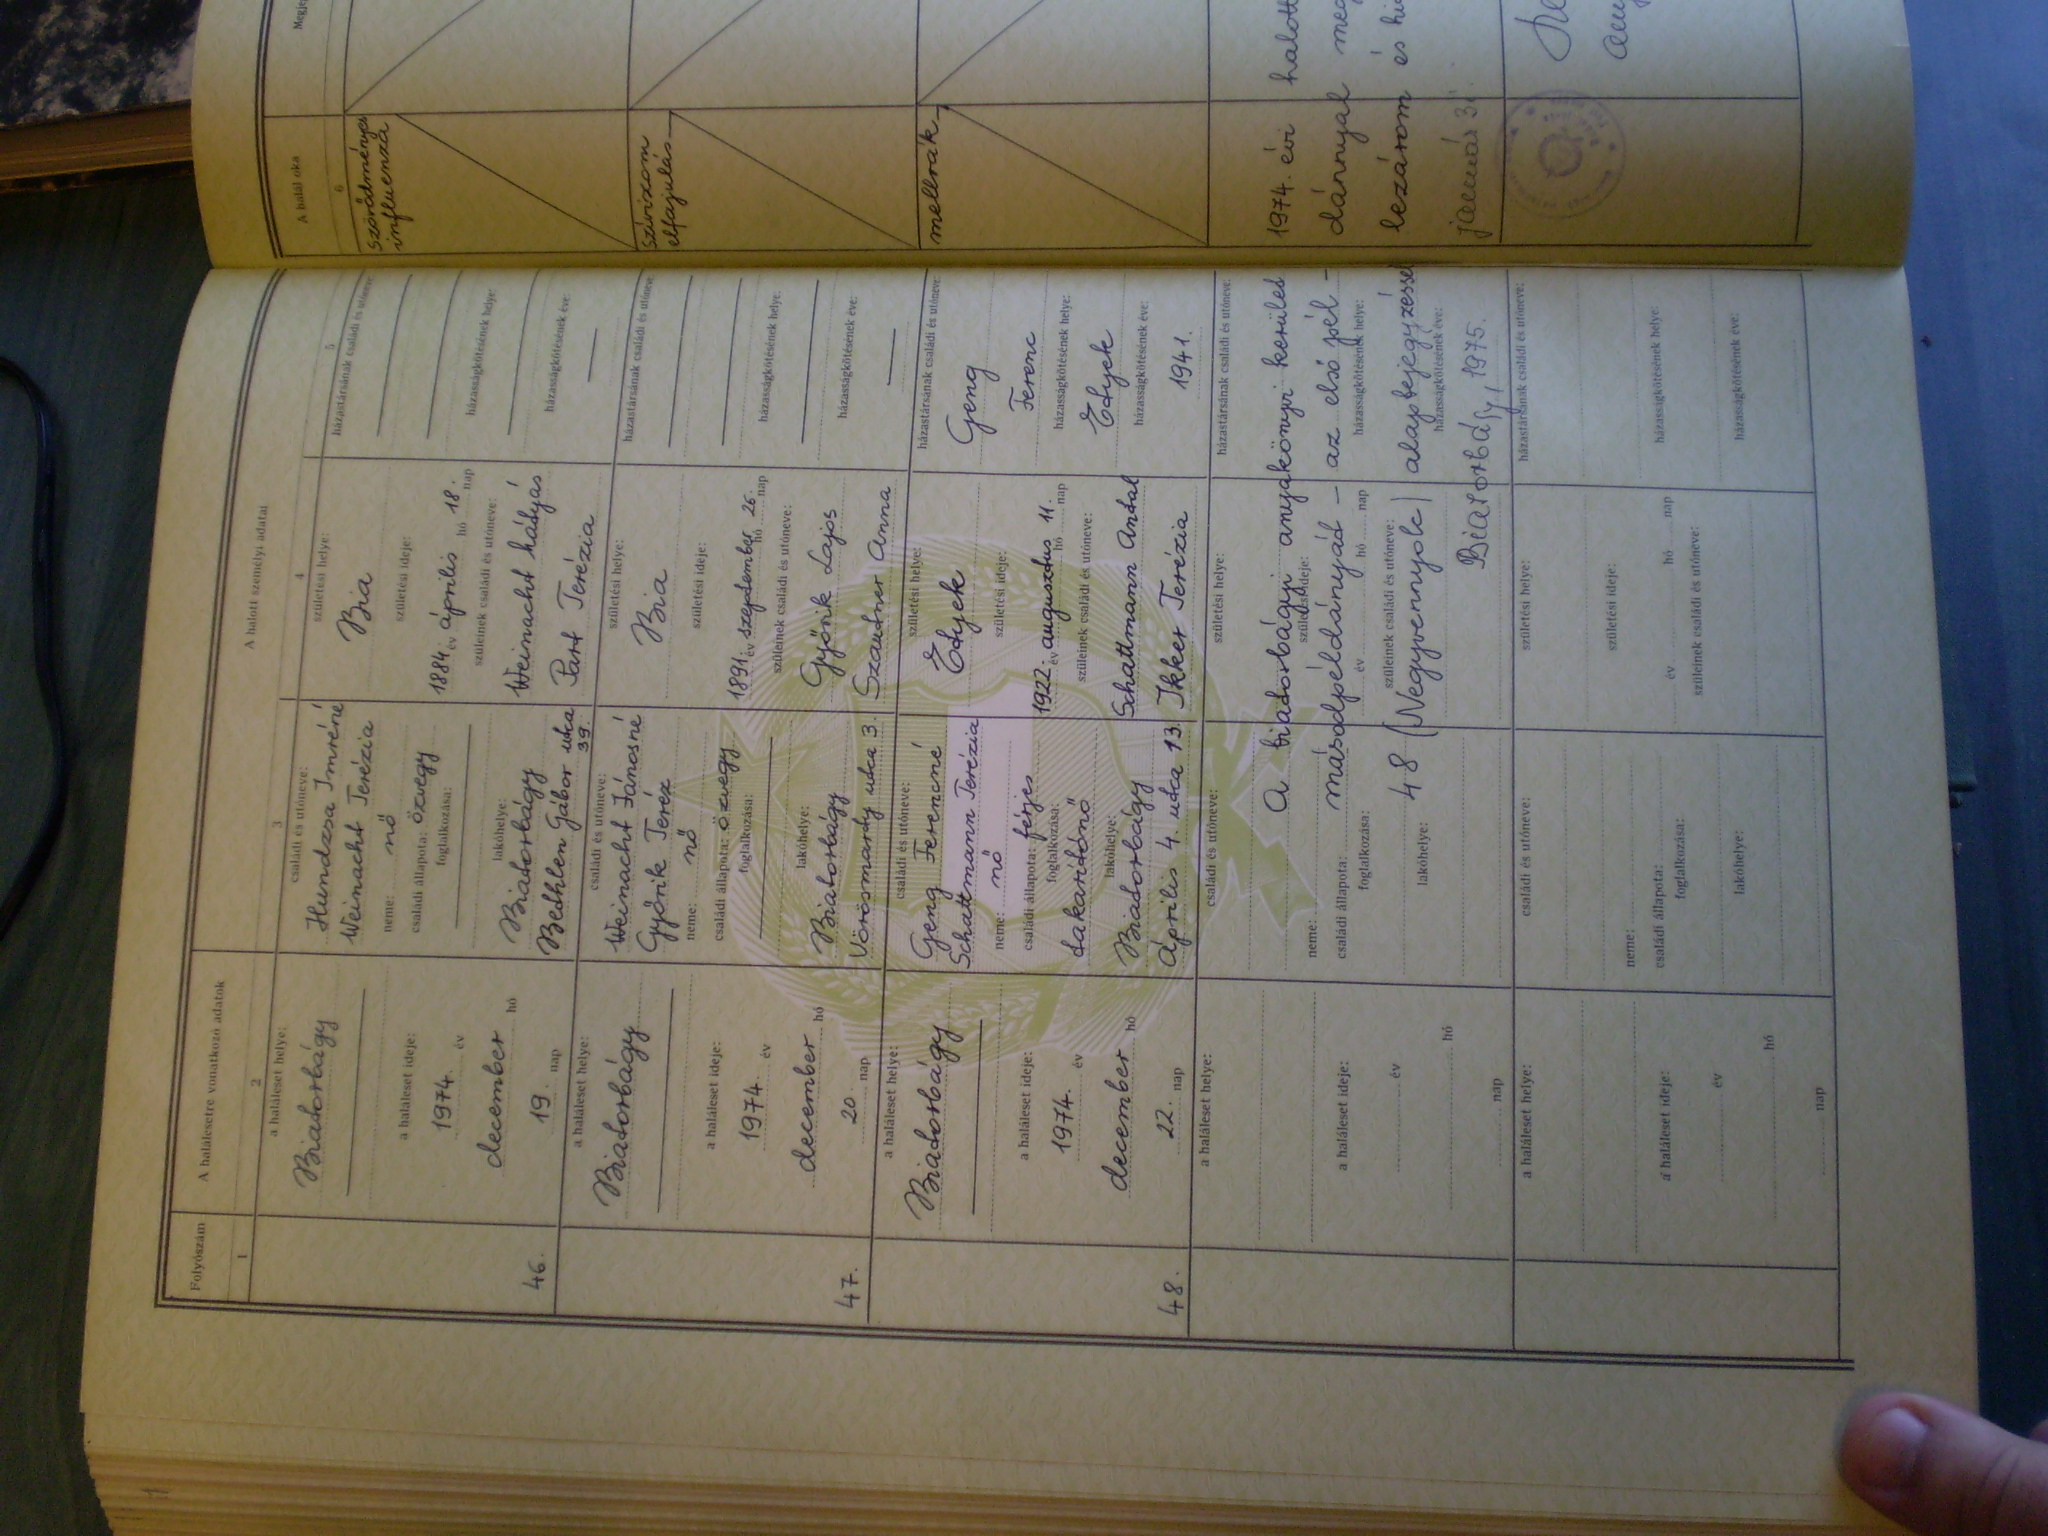 Folyószám
A halálesetre vonatkozó adatok
A halott személyi adatai
A halál oka
1
2
3
4
5
6
a haláleset helye:
Biatorbágy
a haláleset ideje:
1974. év
december hó
19. nap
46.
családi és utóneve:
Hundzsa Imréné
Weinacht Terézia
neme: nő
családi állapota: özvegy
foglalkozása:
lakóhelye:
Biatorbágy
Bethlen Gábor utca
39.
születési helye:
Bia
születési ideje:
1884. év április hó 18. nap
szüleinek családi és utóneve:
Weinacht Mátyás
Part Terézia
házastársának családi és utóneve:
házasságkötésének helye:
házasságkötésének éve:
Szövődményes
influenza
a haláleset helye:
Biatorbágy
a haláleset ideje:
1974. év
december hó
20. nap
47.
családi és utóneve:
Weinacht Jánosné
Győrik Teréz
neme: nő
családi állapota: özvegy
foglalkozása:
lakóhelye:
Biatorbágy
Vörösmarty utca 3.
születési helye:
Bia
születési ideje:
1891. év szeptember hó 26. nap
szüleinek családi és utóneve:
Győrik Lajos
Szautner Anna
házastársának családi és utóneve:
házasságkötésének helye:
házasságkötésének éve:
Szívizom
elfajulás
a haláleset helye:
Biatorbágy
a haláleset ideje:
1974. év
december hó
22. nap
48.
családi és utóneve:
Geng Ferencné
Schattmann Terézia
neme: nő
családi állapota: férjes
foglalkozása:
takarítónő
lakóhelye:
Biatorbágy
Április 4. utca 13.
születési helye:
Etyek
születési ideje:
1922. év augusztus hó 11. nap
szüleinek családi és utóneve:
Schattmann Antal
Ikker Terézia
házastársának családi és utóneve:
Geng
Ferenc
házasságkötésének helye:
Etyek
házasságkötésének éve:
1941.
mellrák
a haláleset helye:
a haláleset ideje:
év
hó
nap
családi és utóneve:
neme:
családi állapota:
foglalkozása:
lakóhelye:
születési helye:
születési ideje:
év hó nap
szüleinek családi és utóneve:
házastársának családi és utóneve:
házasságkötésének helye:
házasságkötésének éve:
A biatorbágyi anyakönyvi kerület 1974. évi
másodpéldányát – az első pél-dánnyal
48 (Negyvennyolc) alapbejegyzéssel lezárom és
Biatorbágy, 1975. január 3
a haláleset helye:
a haláleset ideje:
év
hó
nap
családi és utóneve:
neme:
családi állapota:
foglalkozása:
lakóhelye:
születési helye:
születési ideje:
év hó nap
szüleinek családi és utóneve:
házastársának családi és utóneve:
házasságkötésének helye:
házasságkötésének éve: